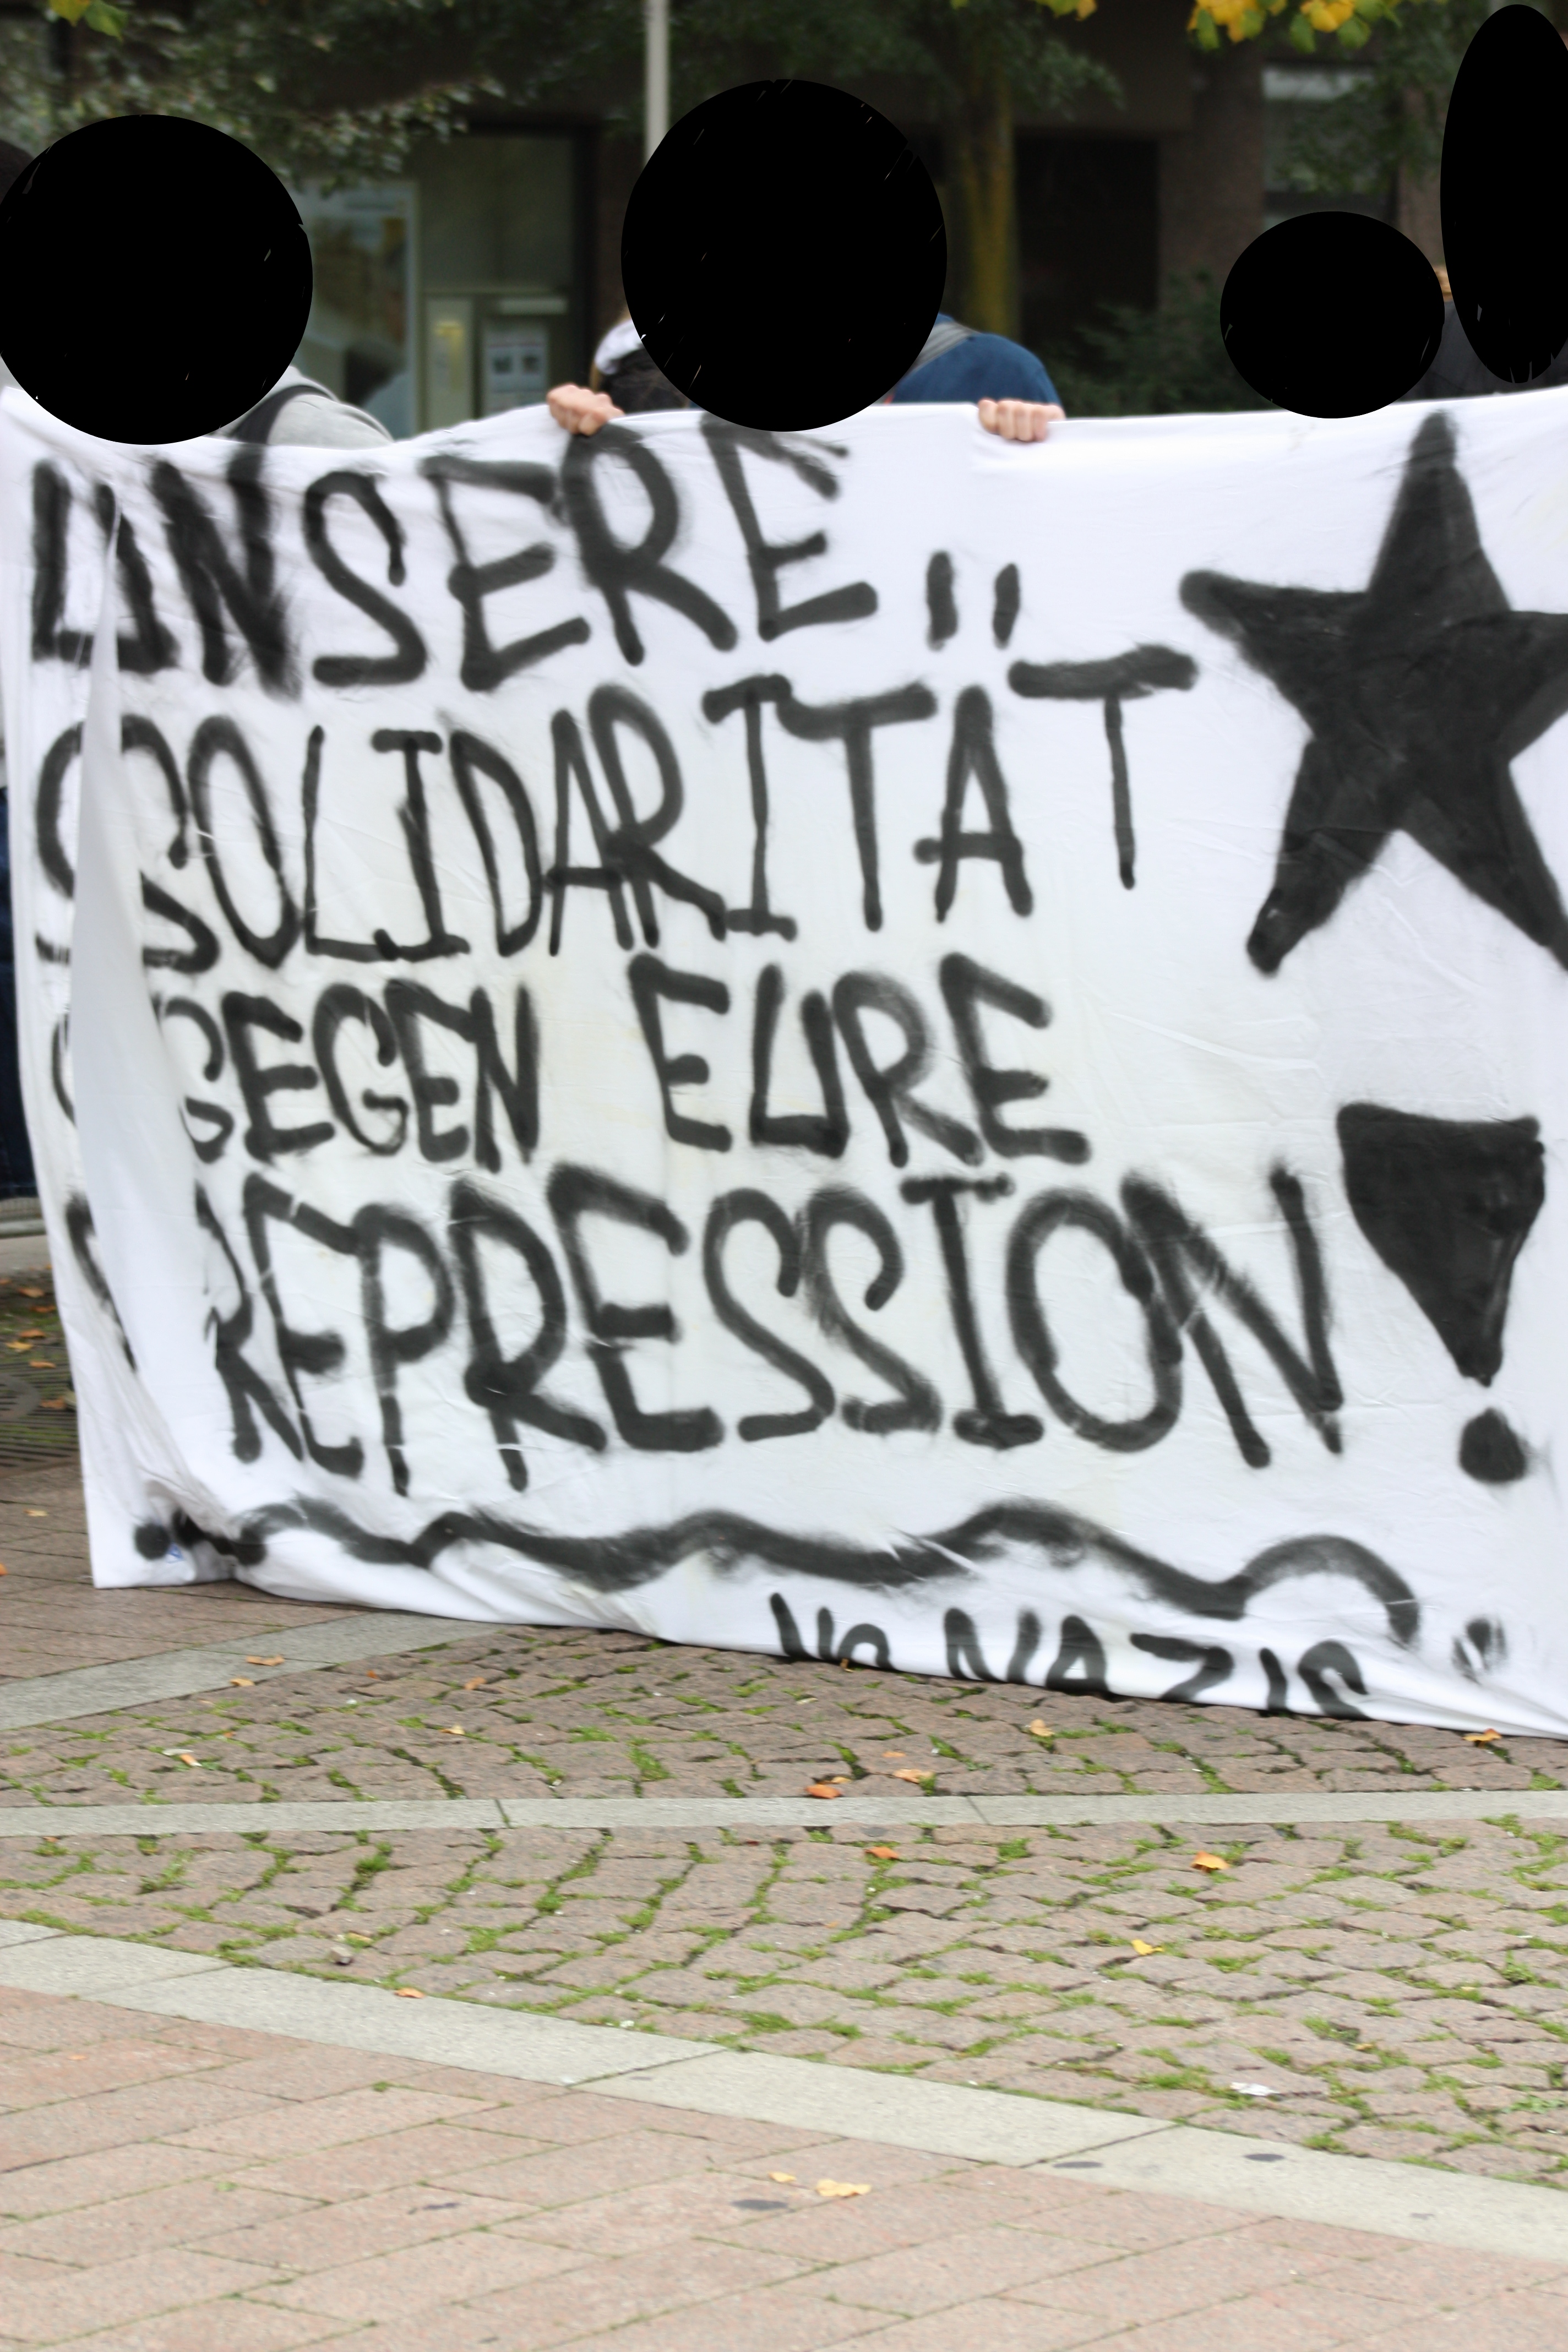 UNSERE
SOLIDARITÄT
GEGEN EURE
REPRESSION!
NO NAZIS